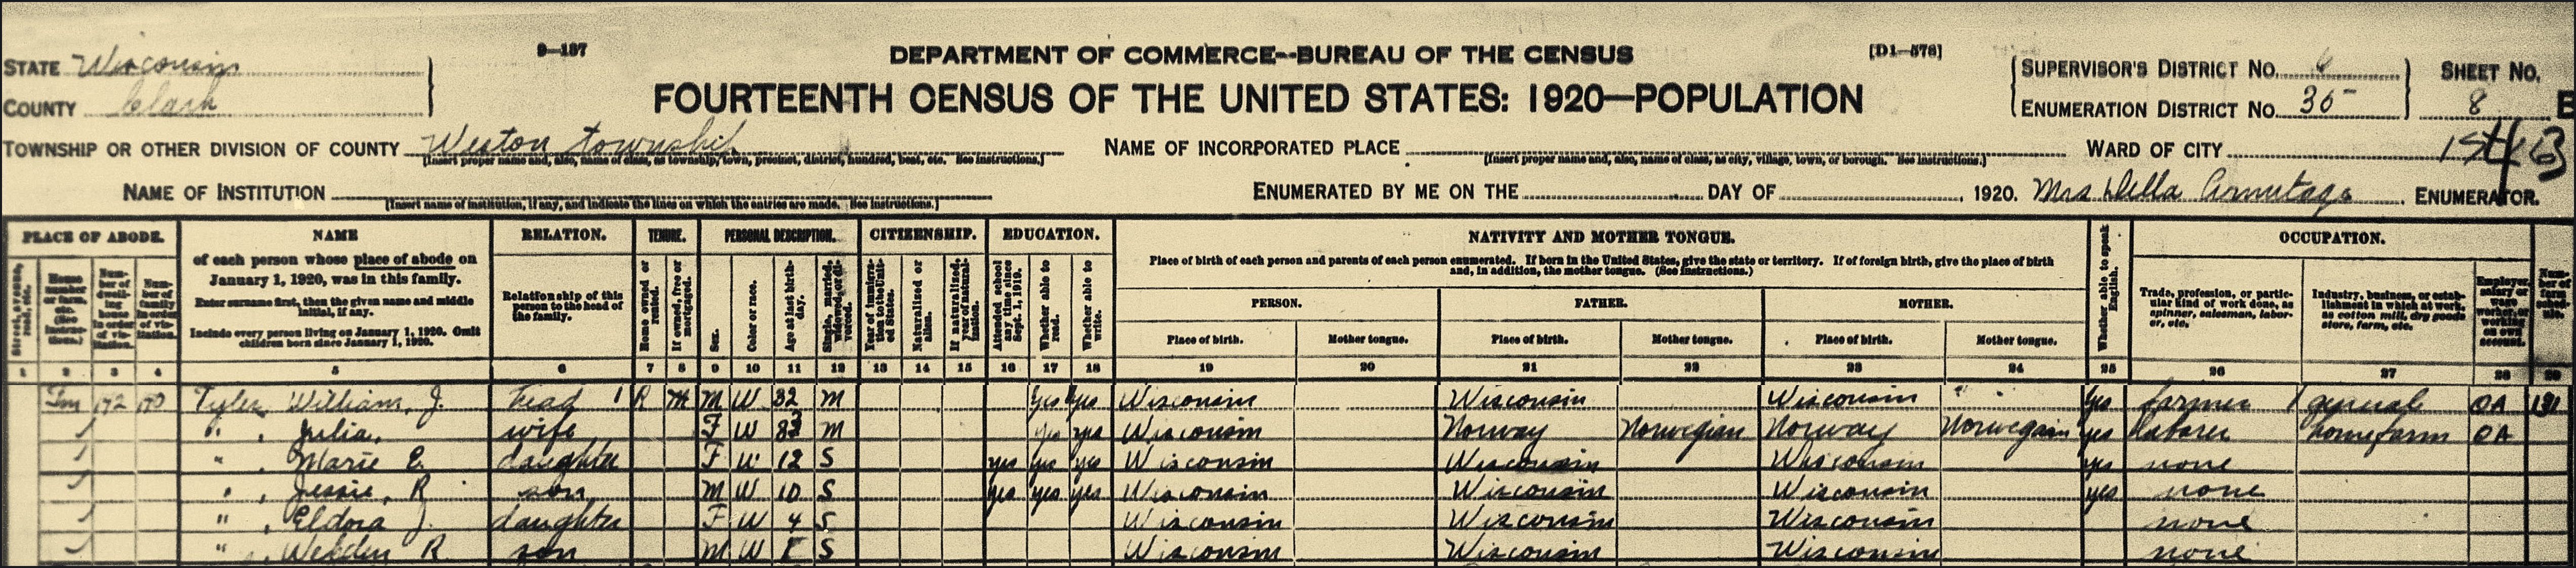 9—137
DEPARTMENT OF COMMERCE--BUREAU OF THE CENSUS
[D1—576]
STATE Wisconsin
COUNTY Clark
FOURTEENTH CENSUS OF THE UNITED STATES: 1920—POPULATION
SUPERVISOR'S DISTRICT NO. 6
ENUMERATION DISTRICT NO. 35
SHEET NO.
8 B
TOWNSHIP OR OTHER DIVISION OF COUNTY Weston township
[Insert proper name and, also, name of class, as township, town, precinct, district, hundred, beat, etc. See instructions.]
NAME OF INCORPORATED PLACE
[Insert proper name and, also, name of class, as city, village, town, or borough. See instructions.]
WARD OF CITY
NAME OF INSTITUTION
[Insert name of institution, if any, and indicate the lines on which the entries are made. See instructions.]
ENUMERATED BY ME ON THE DAY OF , 1920. Mrs Della Armitage ENUMERATOR.
PLACE OF ABODE. NAME RELATION. TENURE. PERSONAL DESCRIPTION. CITIZENSHIP. EDUCATION. NATIVITY AND MOTHER TONGUE. Whether able to speak English. OCCUPATION.
Street, avenue, road, etc.
House number or farm, etc. (See instructions.)
Number of dwelling house in order of visitation.
Number of family in order of visitation.
of each person whose place of abode on January 1, 1920, was in this family.
Enter surname first, then the given name and middle initial, if any.
Include every person living on January 1, 1920. Omit children born since January 1, 1920.
Relationship of this person to the head of the family.
Home owned or rented.
If owned, free or mortgaged.
Sex.
Color or race.
Age at last birthday.
Single, married, widowed, or divorced.
Year of immigration to the United States.
Naturalized or alien.
If naturalized, year of naturalization.
Attended school any time since Sept. 1, 1919.
Whether able to read.
Whether able to write.
Place of birth of each person and parents of each person enumerated. If born in the United States, give the state or territory. If of foreign birth, give the place of birth and, in addition, the mother tongue. (See instructions.)
PERSON. FATHER. MOTHER.
Place of birth. Mother tongue. Place of birth. Mother tongue. Place of birth. Mother tongue.
Trade, profession, or particular kind of work done, as spinner, salesman, laborer, etc.
Industry, business, or establishment in which at work, as cotton mill, dry goods store, farm, etc.
Employer, salary or wage worker, or working on own account.
Number of farm schedule.
1 2 3 4 5 6 7 8 9 10 11 12 13 14 15 16 17 18 19 20 21 22 23 24 25 26 27 28 29
Fm 172 170 Tyler, William, J. head 1 R M M W 32 M yes yes Wisconsin Wisconsin Wisconsin yes farmer general OA 131
" , Julia, wife F W M yes yes Wisconsin Norway Norwegian Norway Norwegain yes laborer homefarm OA
" , Marie E. daughter F W 12 S yes yes yes Wisconsin Wisconsin Wisconsin yes none
" , Jessie, R son M W 10 S yes yes yes Wisconsin Wisconsin Wisconsin yes none
" , Eldora J. daughter F W 4 S Wisconsin Wisconsin Wisconsin none
" , R son M W 1 S Wisconsin Wisconsin Wisconsin none